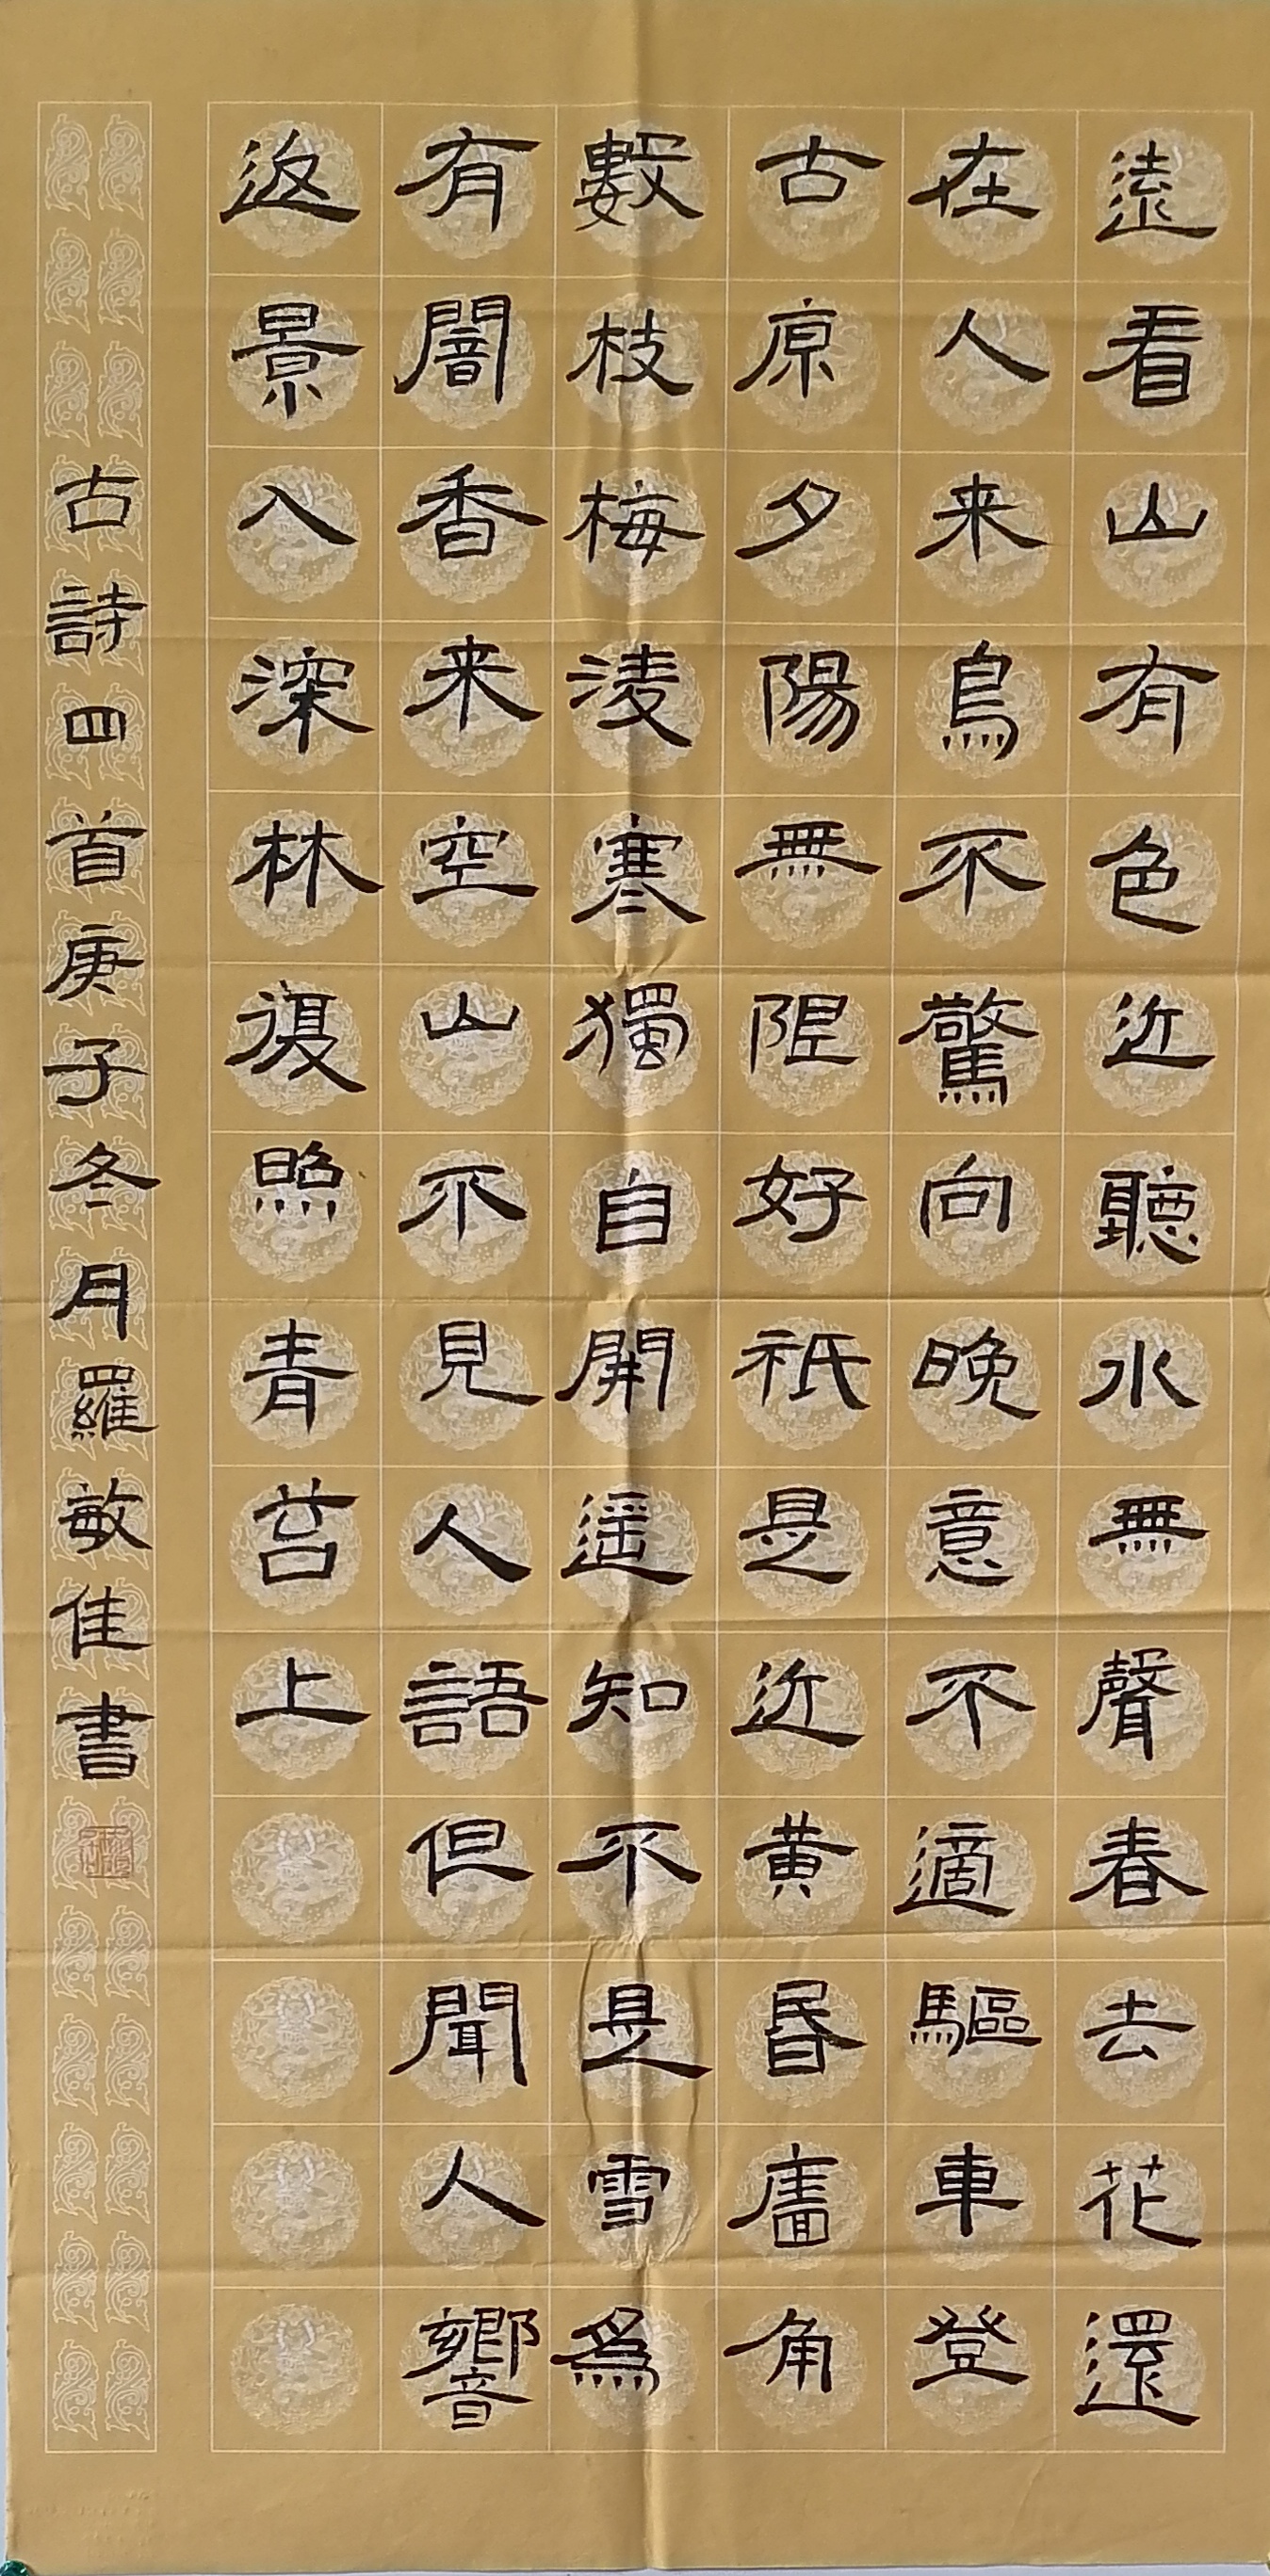 遠看山有色近聽水無聲春去花還
在人来鳥不驚向晚意不適驅車登
古原夕陽無限好祇是近黄昬廧角
數枝梅淩寒獨自開遥知不是雪爲
有闇香来空山不見人語但聞人響
返景入深林復照青苔上
古詩四首庚子冬月羅敏佳書